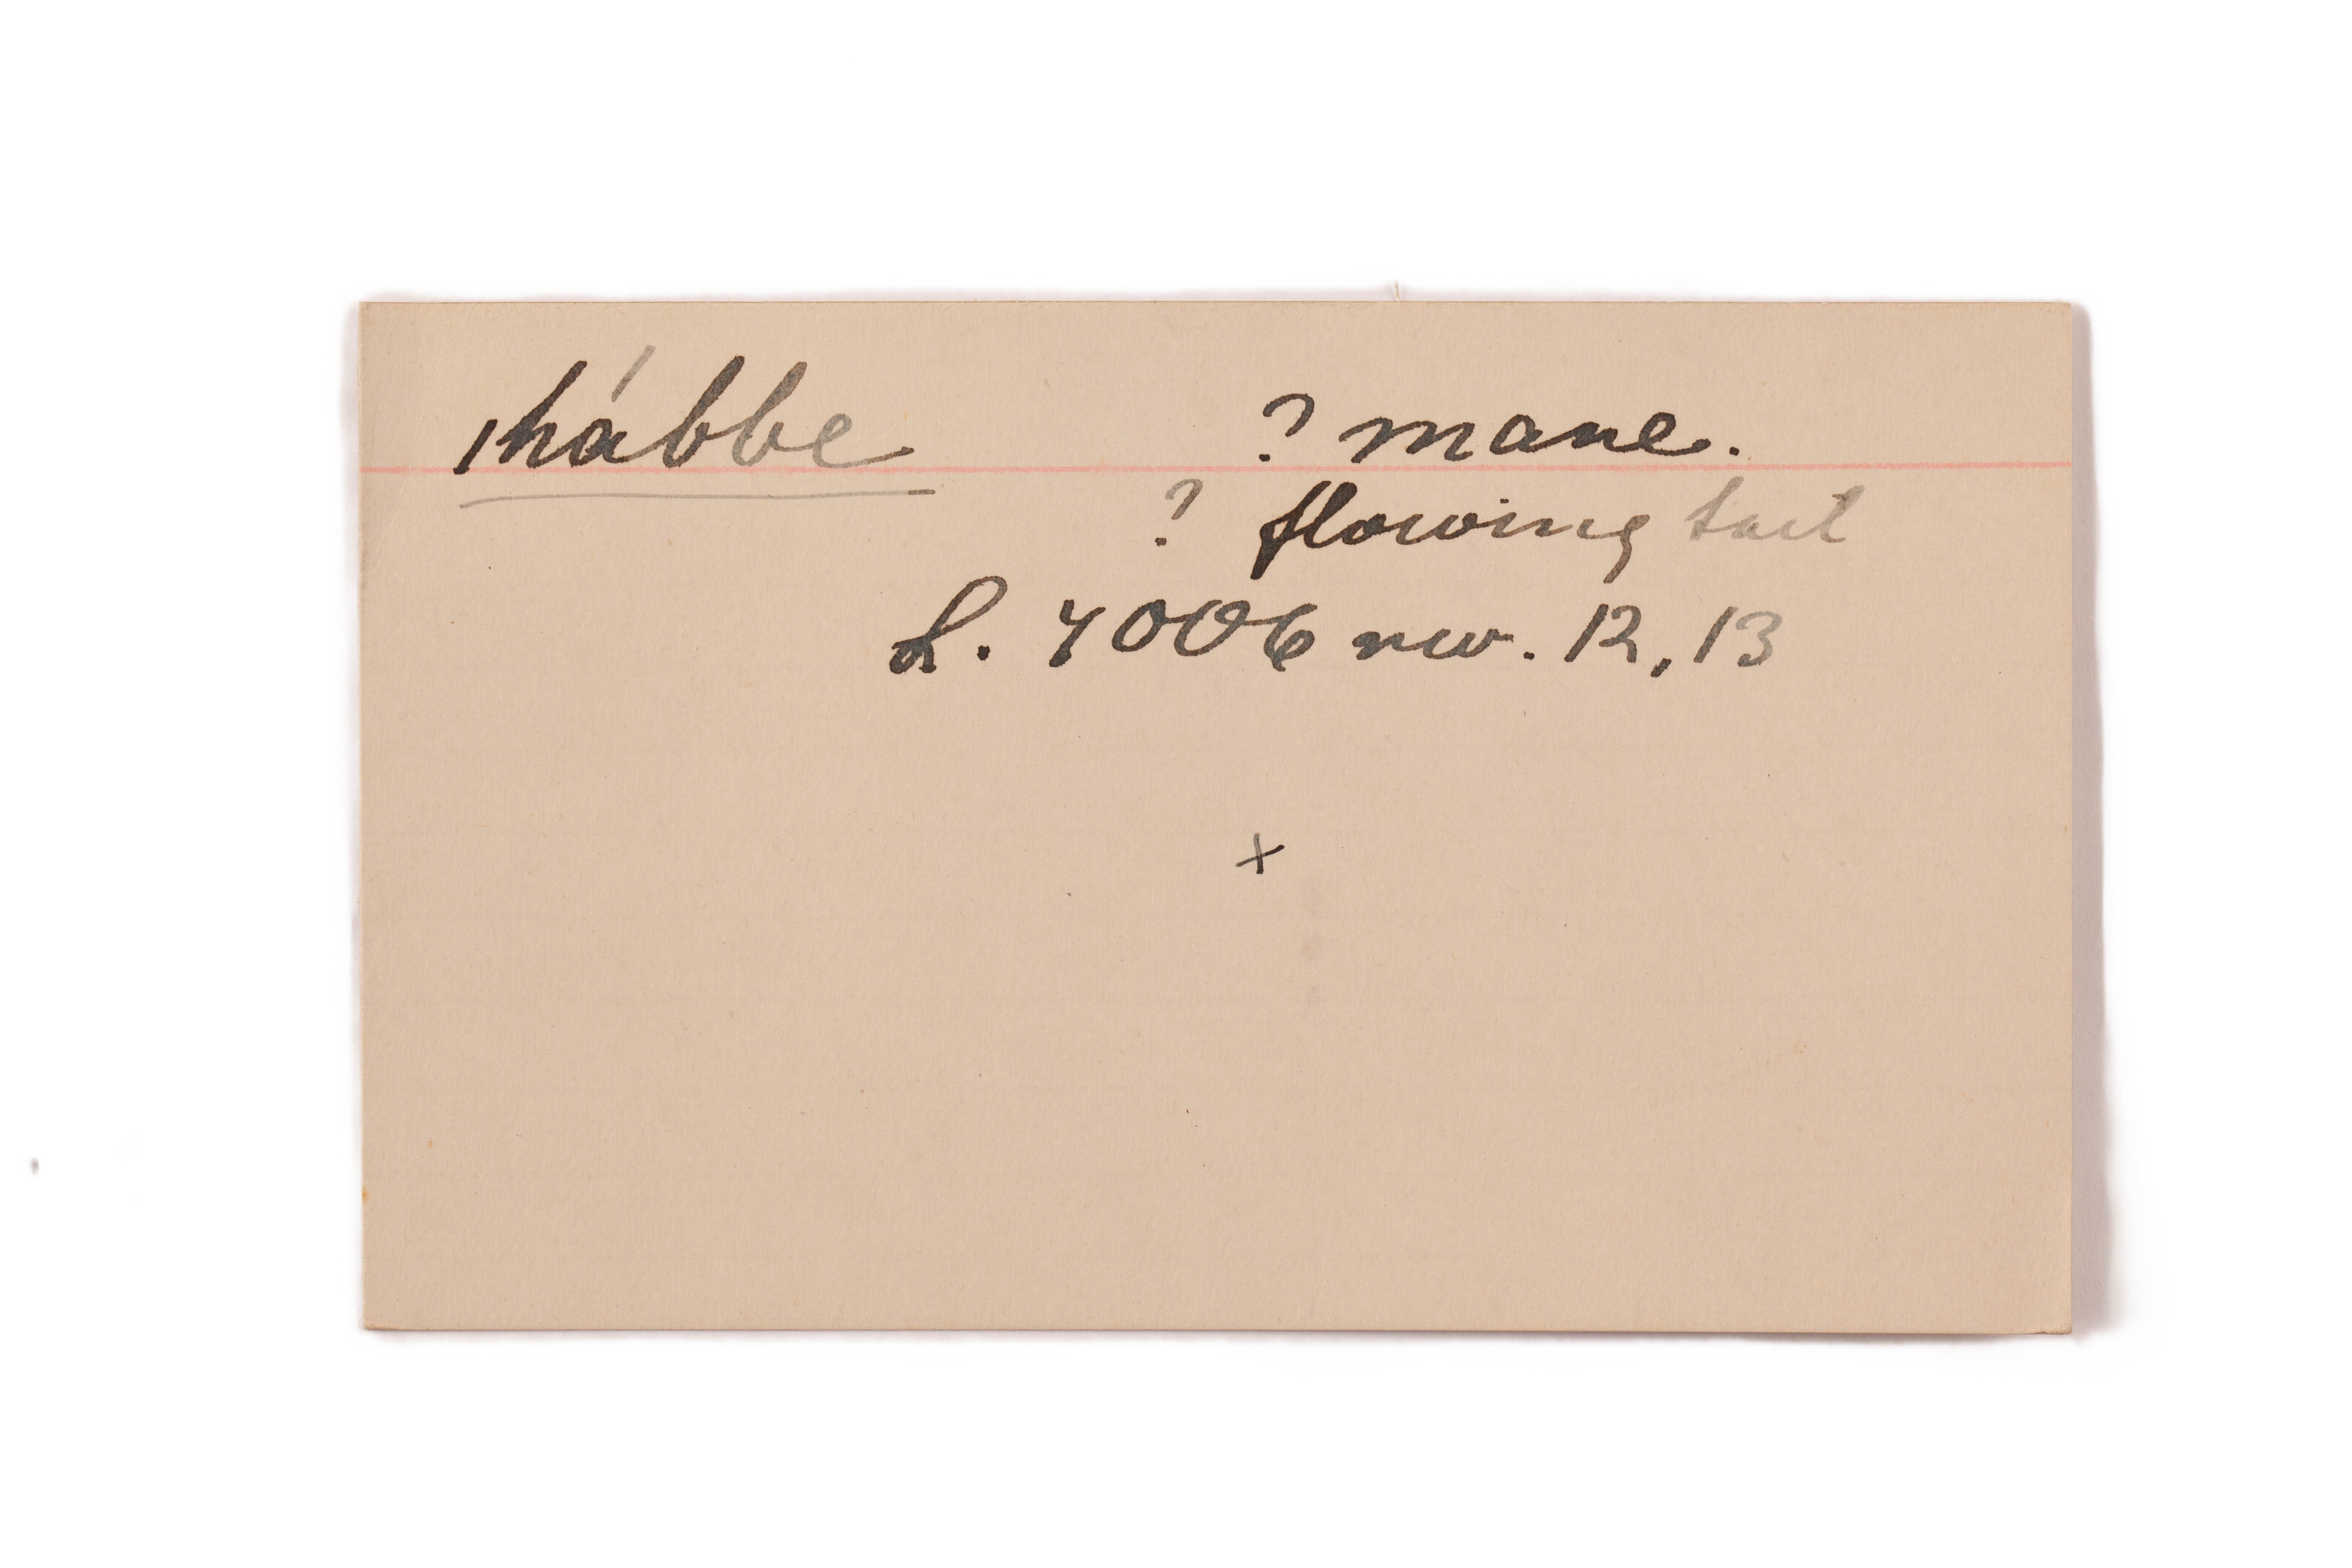 ǀhábbe ? mane.
? flowing tail
L. 4006 rev. 12, 13
x